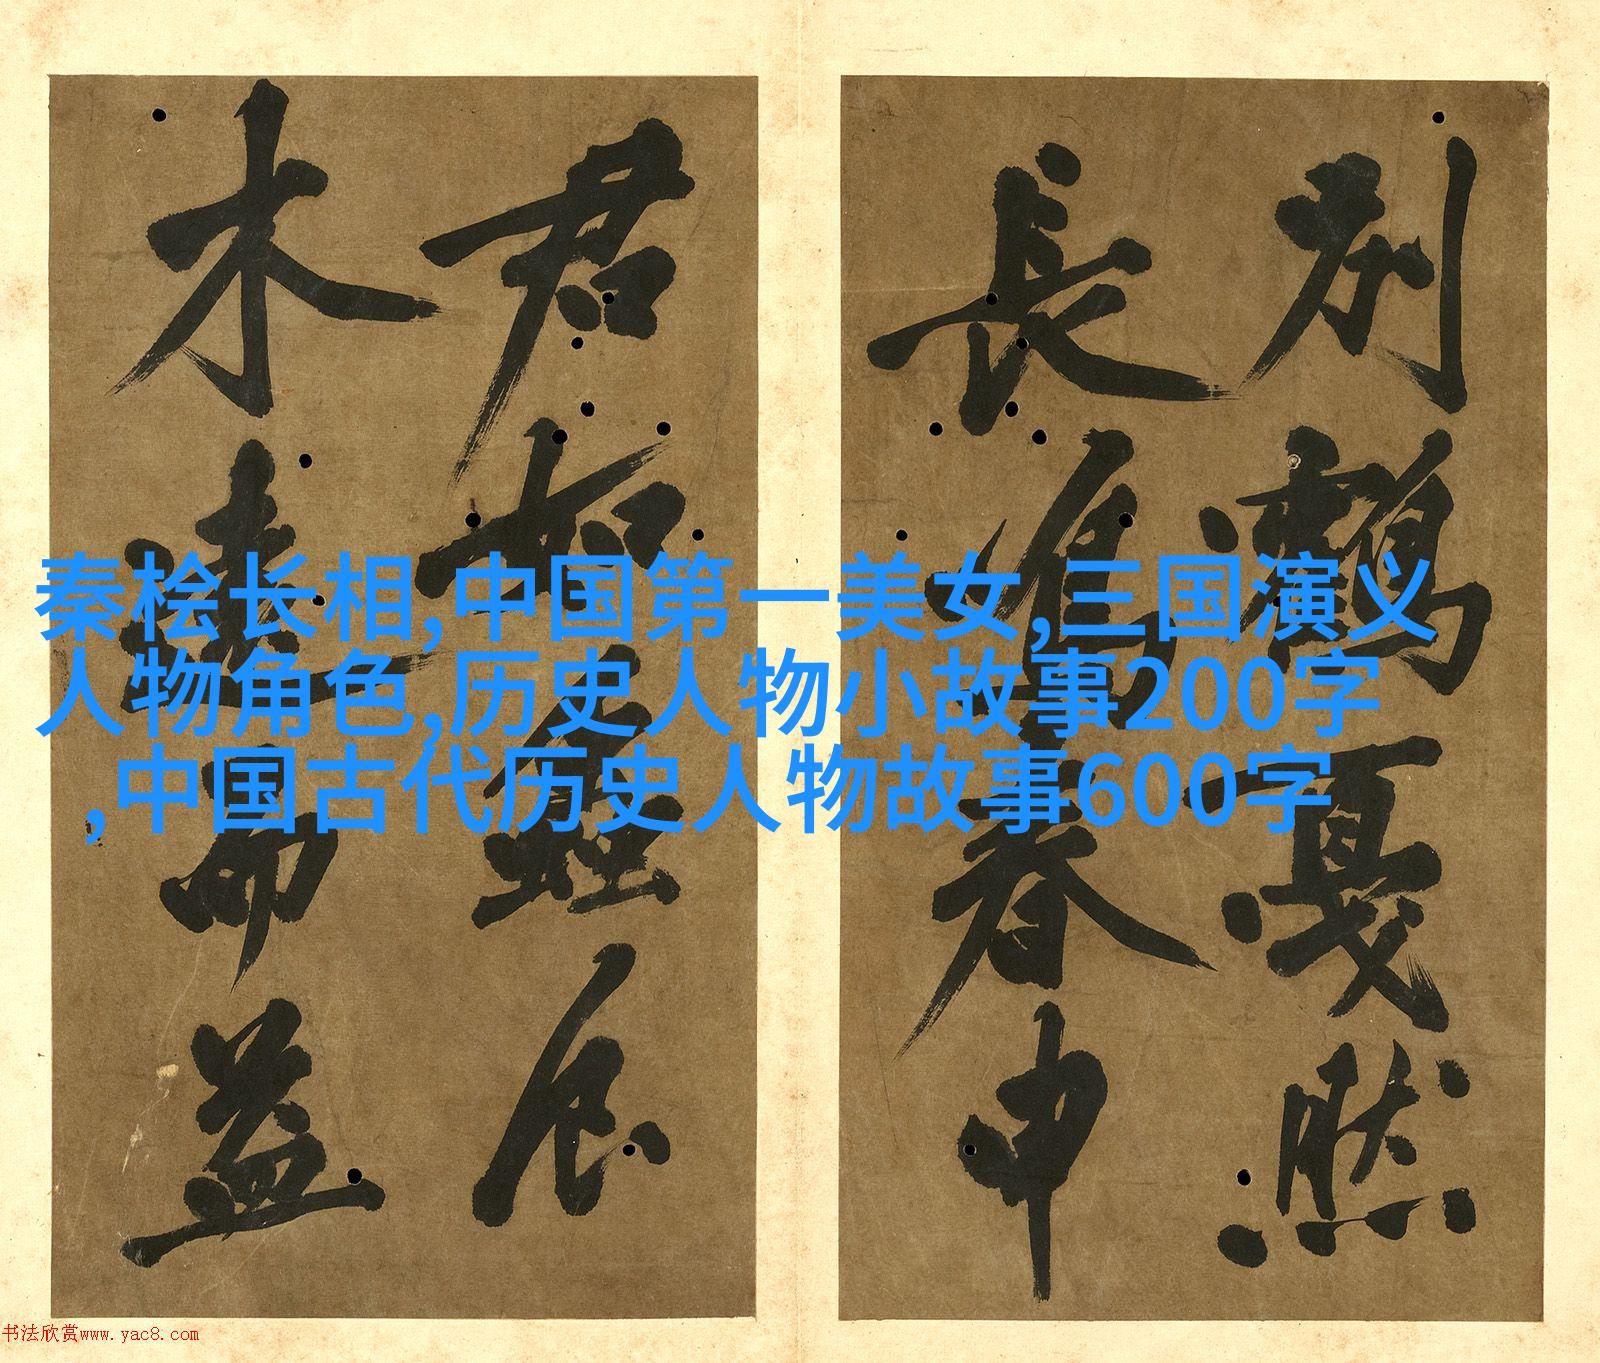 別鶴戛然
長春申
君如
木遠而益
秦桧长相,中国第一美女,三国演义
人物角色,历史人物小故事200字
,中国古代历史人物故事600字
书法欣赏www.yac8.com